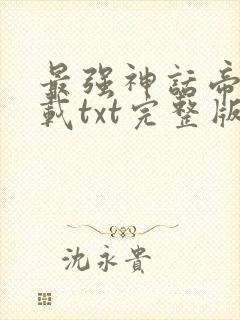 最强神話帝
載txt完整版
沈永貴